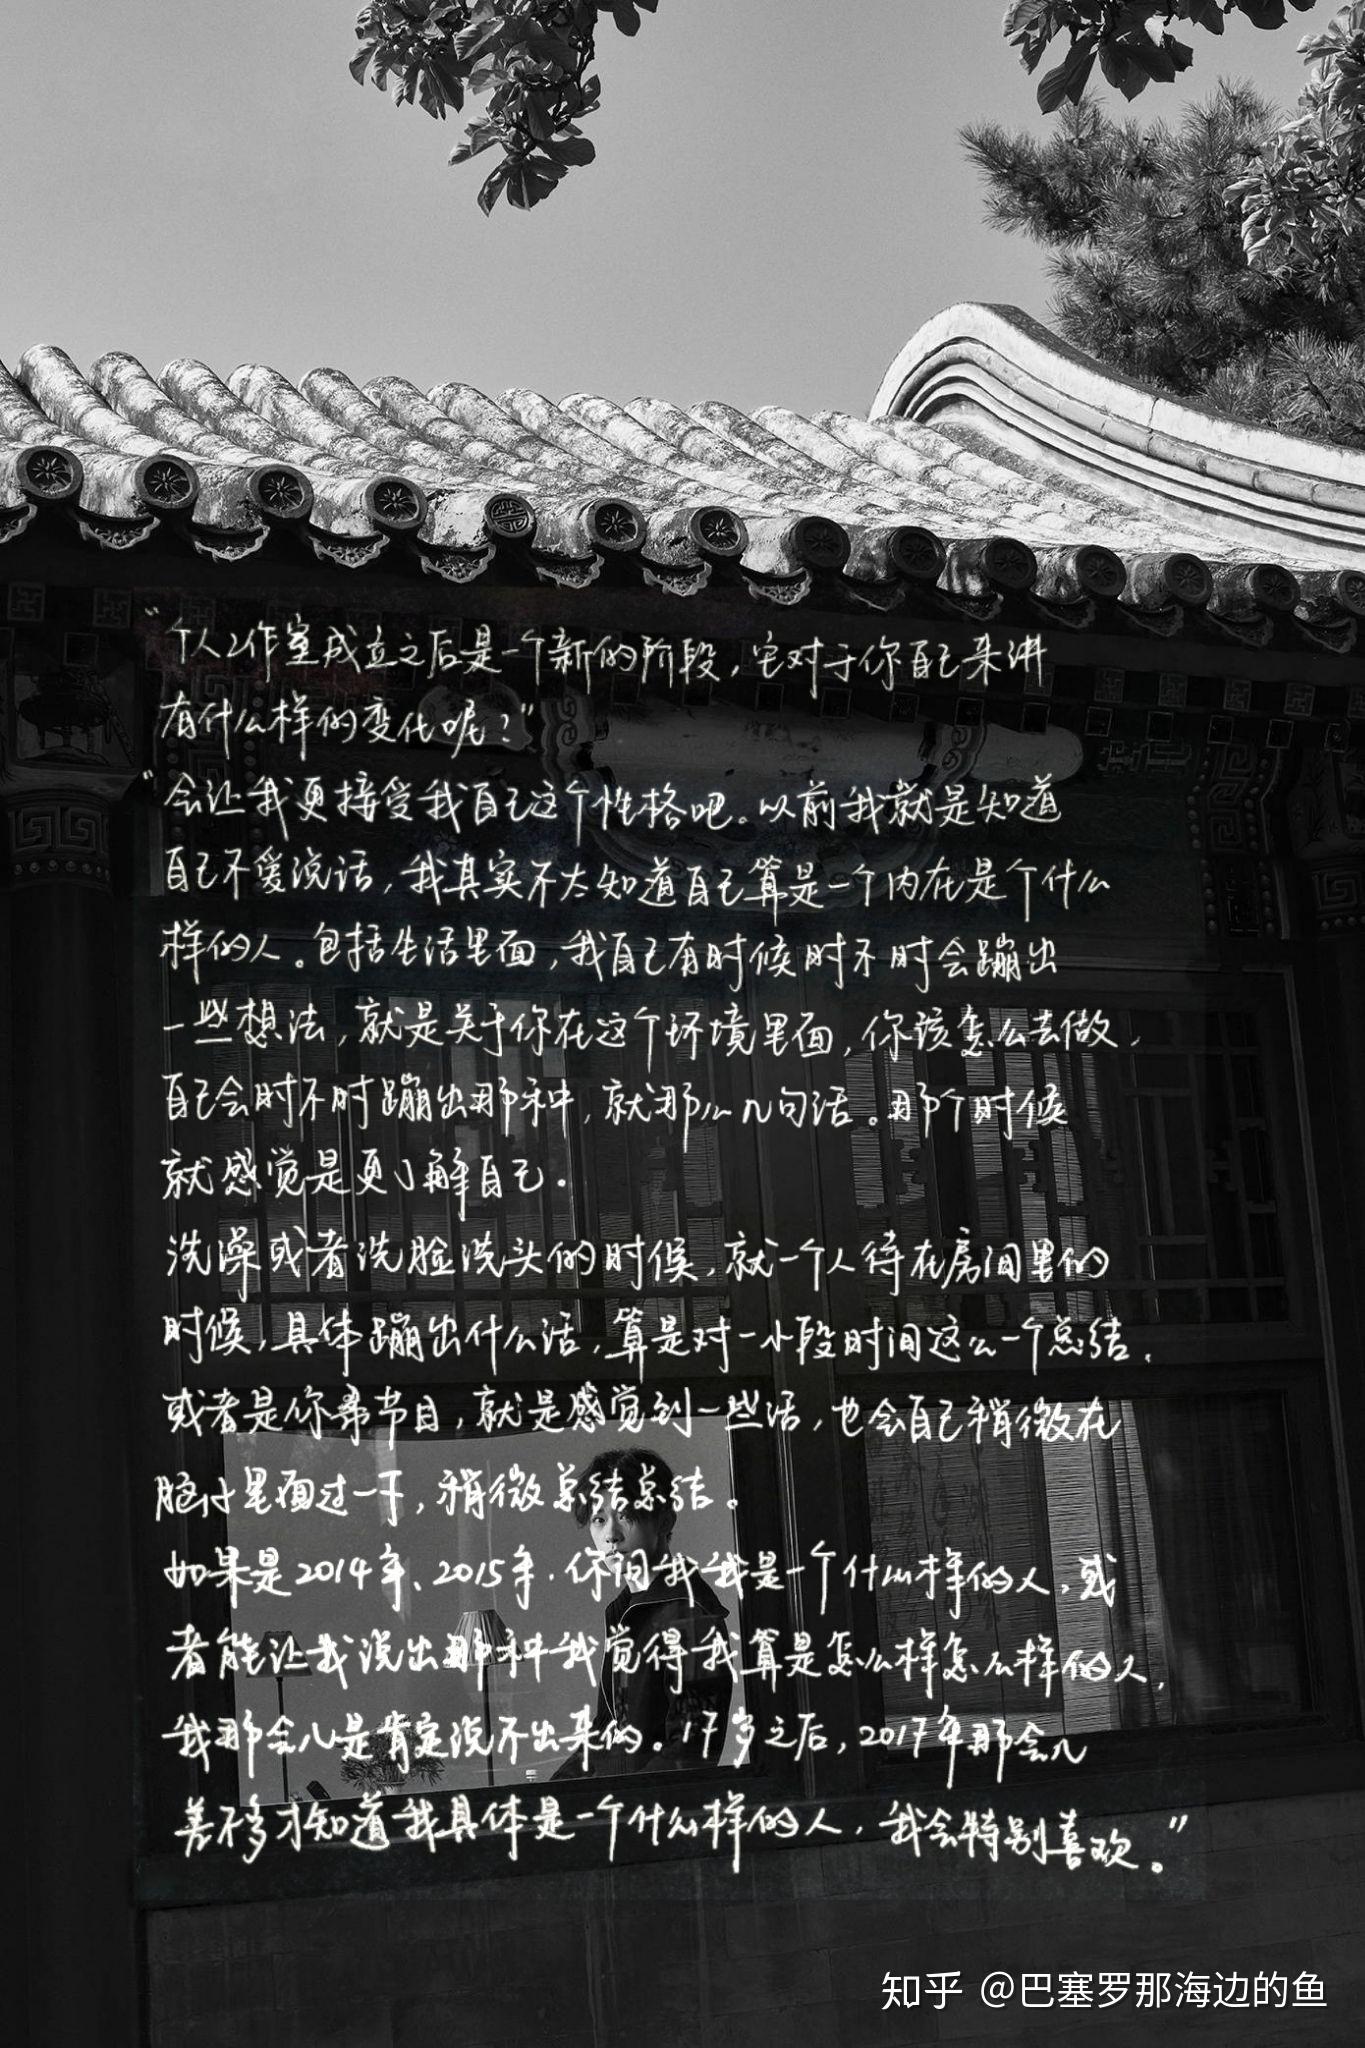 “个人工作室成立之后是一个新的阶段，它对于你自己来讲
有什么样的变化呢？”
“会让我更接受我自己这个性格吧。以前我就是知道
自己不爱说话，我其实不太知道自己算是一个内在是个什么
样的人。包括生活里面，我自己有时候时不时会蹦出
一些想法，就是关于你在这个环境里面，你该怎么去做，
自己会时不时蹦出那种，就那么几句话。那个时候
就感觉是更了解自己。
洗澡或者洗脸洗头的时候，就一个人待在房间里的
时候，具体蹦出什么话，算是对一小段时间这么一个总结，
或者是你录节目，就是感觉到一些话，也会自己稍微在
脑汁里面过一下，稍微总结总结。
如果是2014年、2015年，你问我我是一个什么样的人，或
者能让我说出那种我觉得我算是怎么样怎么样的人，
我那会儿是肯定说不出来的。17岁之后，2017年那会儿
差不多才知道我具体是一个什么样的人，我会特别喜欢。”
知乎 @巴塞罗那海边的鱼